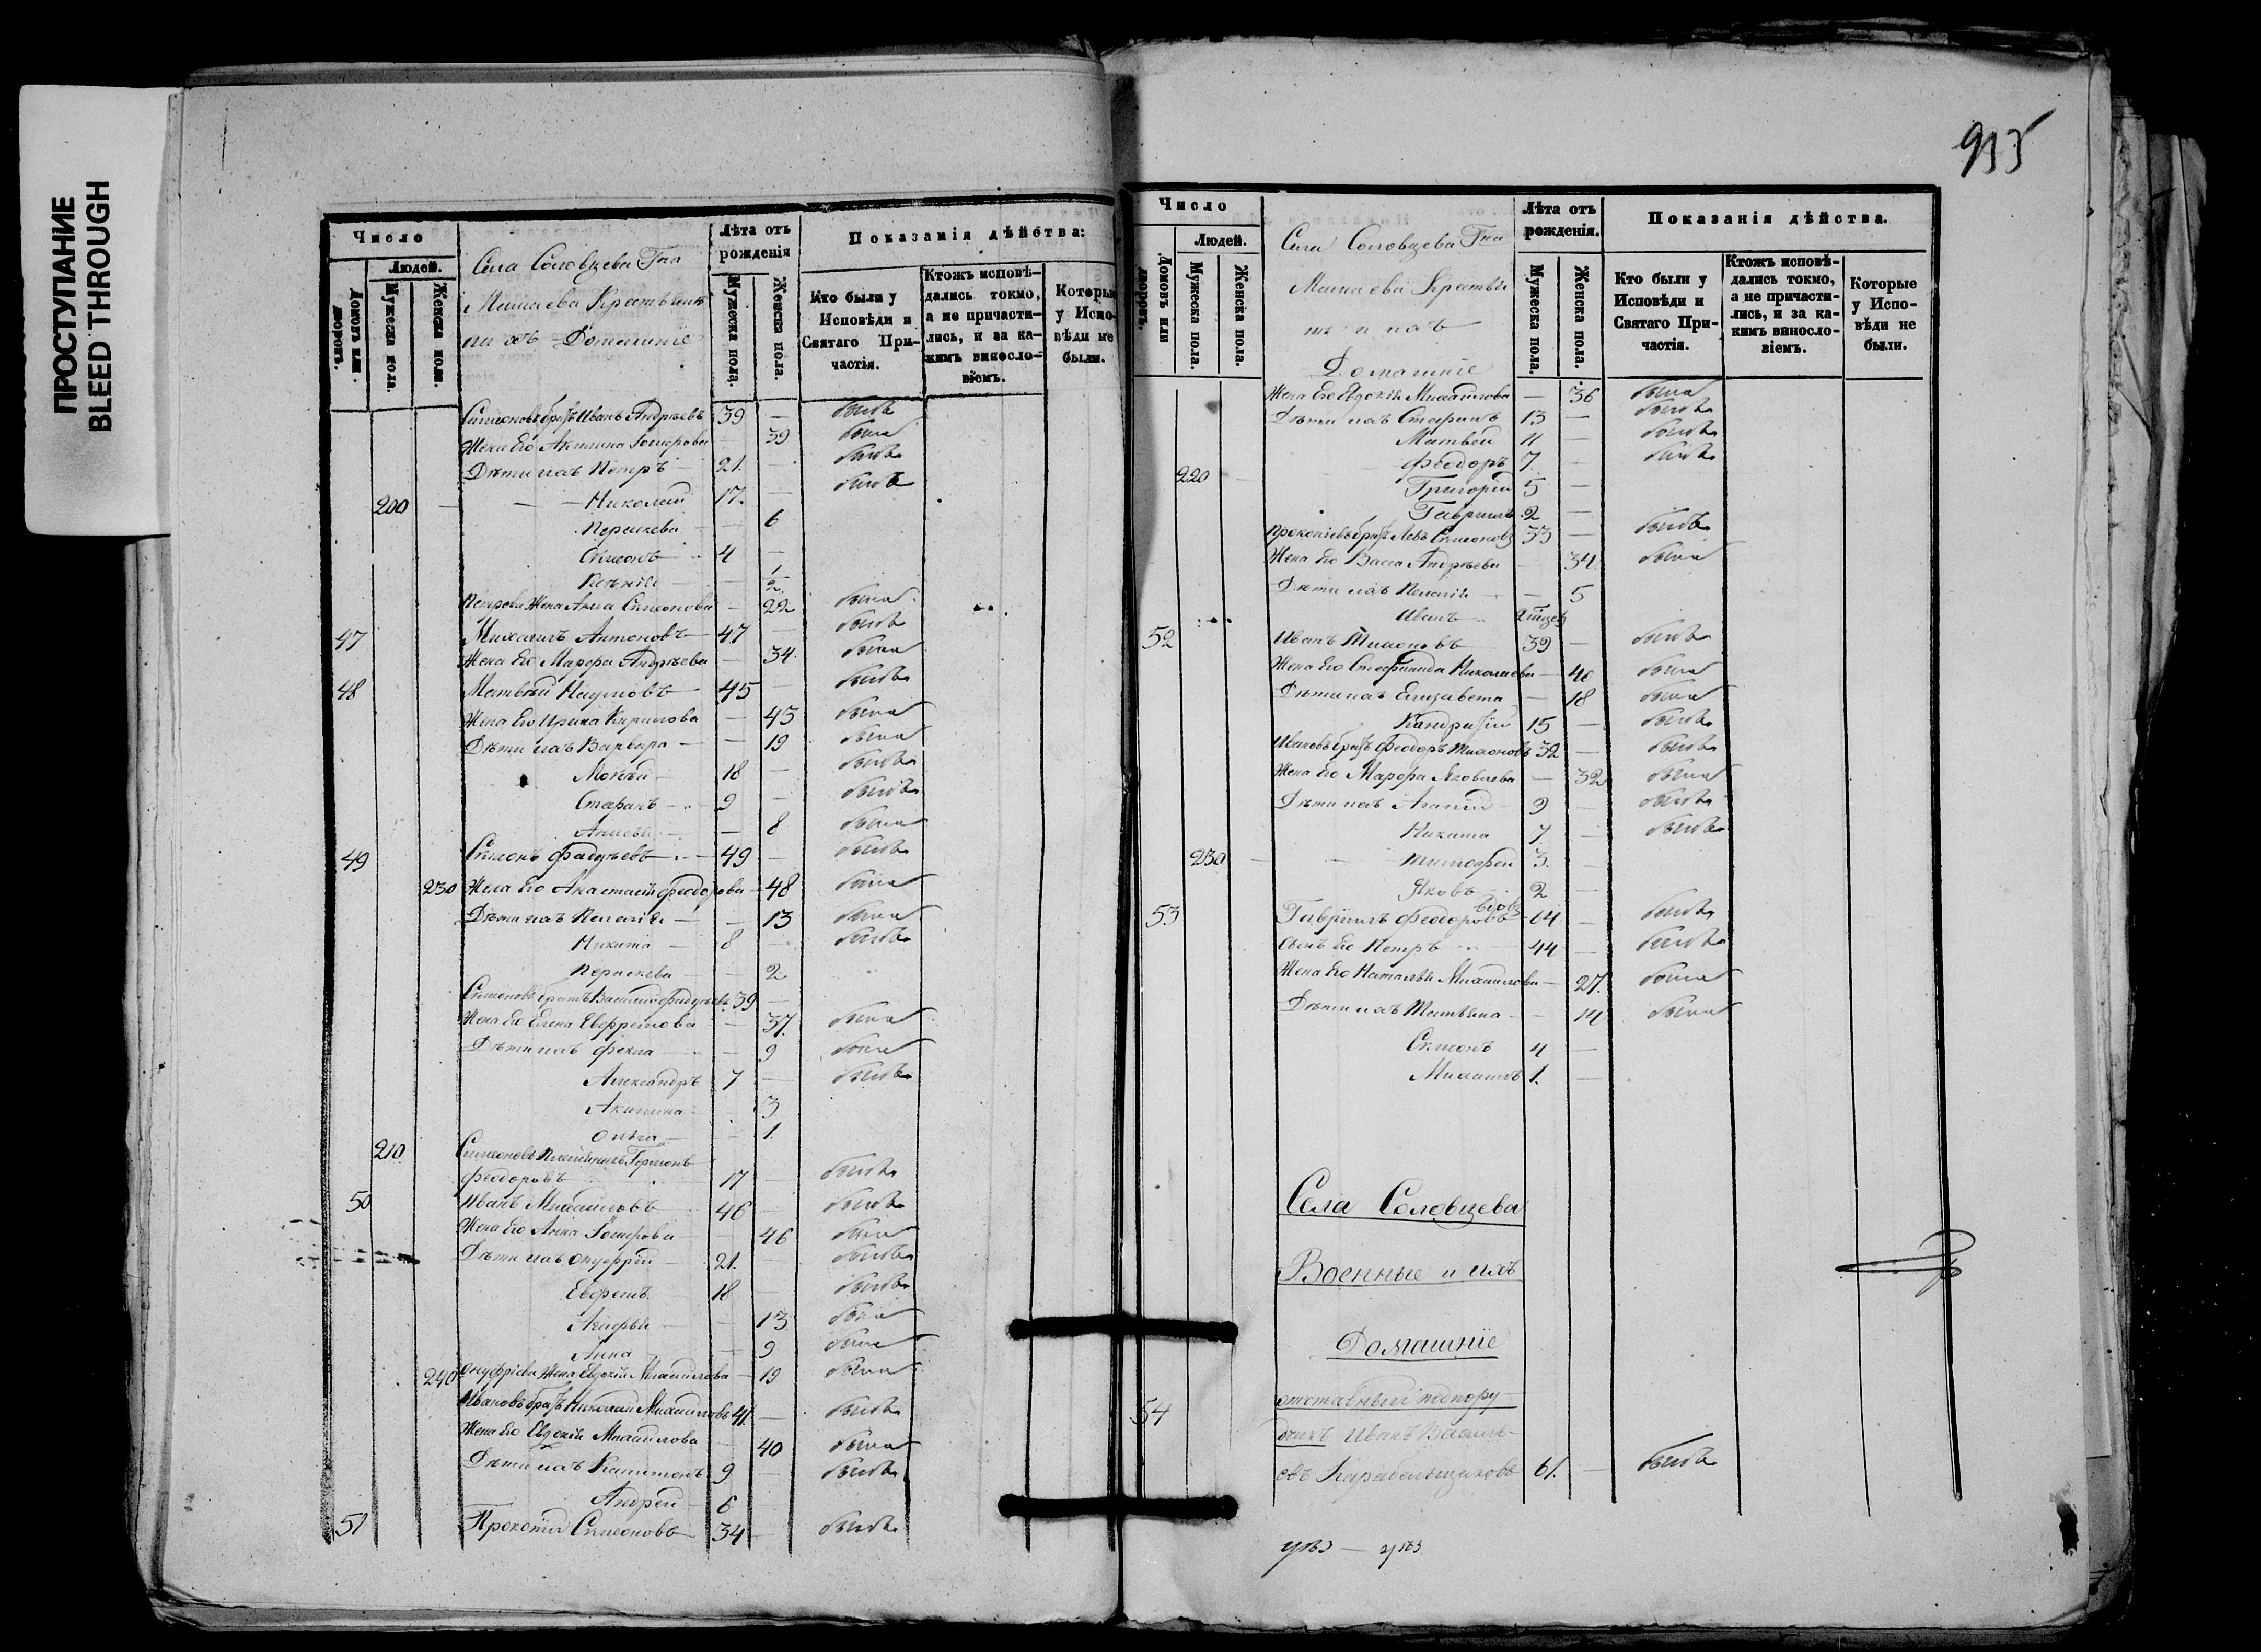 ПРОСТУПАНИЕ
BLEED THROUGH
Число
Людей.
Домовъ или дворовъ.
Мужеска пола.
Женска пола.
Села Соловцева Гна
Крестьяне
ихъ Домашніе
Лѣта отъ рожденія
Мужеска пола.
Женска пола.
Показанія дѣйства:
Кто были у Исповѣди и Святаго Причастія.
Ктожъ исповѣдались токмо, а не причастились, и за какимъ винословіемъ.
Которые у Исповѣди не были.
Симеоновъ братъ Иванъ Андреевъ 39 — былъ
Жена Его Акилина — 39 была
Дѣти ихъ Петръ 21. — былъ
200 — Николай 17. — былъ
Параскева — 6
Симеонъ 4 —
Ксенія — 1/2
Петрова Жена Анна Симеонова — 22 была
47 Михаилъ Антоновъ 47 — былъ
Жена Его Марфа Андреева — 34 была
48 Матвѣй Наумовъ 45 — былъ
Жена Его Ирина Кирилова — 43 была
Дѣти ихъ Варвара — 19 была
Мокѣй 18 — былъ
Стефанъ 9 — былъ
— 8 была
49 Симеонъ Фадѣевъ 49 — былъ
230 Жена Его Анастасія Феодорова — 48 была
Дѣти ихъ Пелагія — 13 была
Никита 8 — былъ
Параскева — 2
Симеоновъ братъ Василій Фадѣевъ 39 —
Жена Его Елена Ефремова — 37. была
Дѣти ихъ Фекла — 9 была
Александръ 7 — былъ
Акилина — 3
Ольга — 1.
210 Симеоновъ Племянникъ
Феодоровъ 17 — былъ
50 Иванъ Михайловъ 46 — былъ
Жена Его Анна — 46 была
Дѣти ихъ Онуфрій 21. — былъ
Ефремъ 18 — былъ
Агафья — 13 была
Анна — 9 была
240 Онуфріева Жена Евдокія Михайлова — 19 была
Ивановъ братъ Николай Михайловъ 41. — былъ
Жена Его Евдокія Михайлова — 40 была
Дѣти ихъ Капитонъ 9 — былъ
Андрей 6
51 Прокопій Симеоновъ 34 — былъ
935
Число
Людей.
Домовъ или дворовъ.
Мужеска пола.
Женска пола.
Села Соловцева Гна
Крестья
не и ихъ
Домашніе
Лѣта отъ рожденія.
Мужеска пола.
Женска пола.
Показанія дѣйства.
Кто были у Исповѣди и Святаго Причастія.
Ктожъ исповѣдались токмо, а не причастились, и за какимъ винословіемъ.
Которые у Исповѣди не были.
Жена Его Евдокія Михайлова — 36 была
Дѣти ихъ Стефанъ 13 — былъ
Матвей 11 — былъ
Феодоръ 7. — былъ
220 Григорій 5 —
Гавріилъ 2 —
Прокопіевъ братъ Левъ Симеоновъ 33 — былъ
Жена Его Васса Андреева — 34 была
Дѣти ихъ Пелагія — 5
Иванъ
52 Иванъ Тихоновъ 39 — былъ
Жена Его Стефанида Николаева — 40 была
Дѣти ихъ Елизавета — 18 была
Кандратій 15 — былъ
Ивановъ братъ Феодоръ Тихоновъ 32 — былъ
Жена Его Марфа Яковлева — 32 была
Дѣти ихъ Агапій 9 — былъ
Никита 7. — былъ
230 Тимофей 3. —
Яковъ 2 —
53 Гавріилъ Феодоровъ вдовъ 64 — былъ
Сынъ Его Петръ 44 — былъ
Жена Его Наталья Михайлова — 27. была
Дѣти ихъ Татьяна — 14 была
Симеонъ 4 —
Михаилъ 1. —
Села Соловцева
Военные и ихъ
Домашніе
54 отставный подпору-
чикъ Иванъ Василь-
евъ Карабельщиковъ 61. — былъ